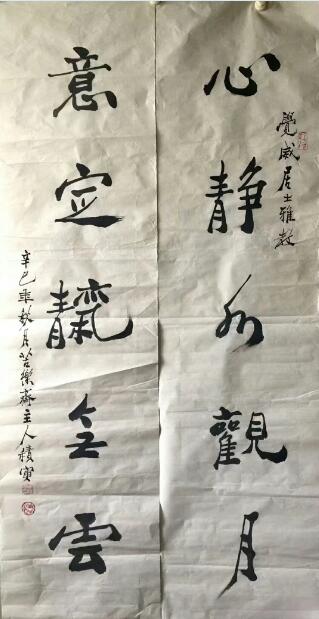 心静水觀月
覺威居士雅教
意定靝雲
辛巳年秋月苦樂齋主人積寅